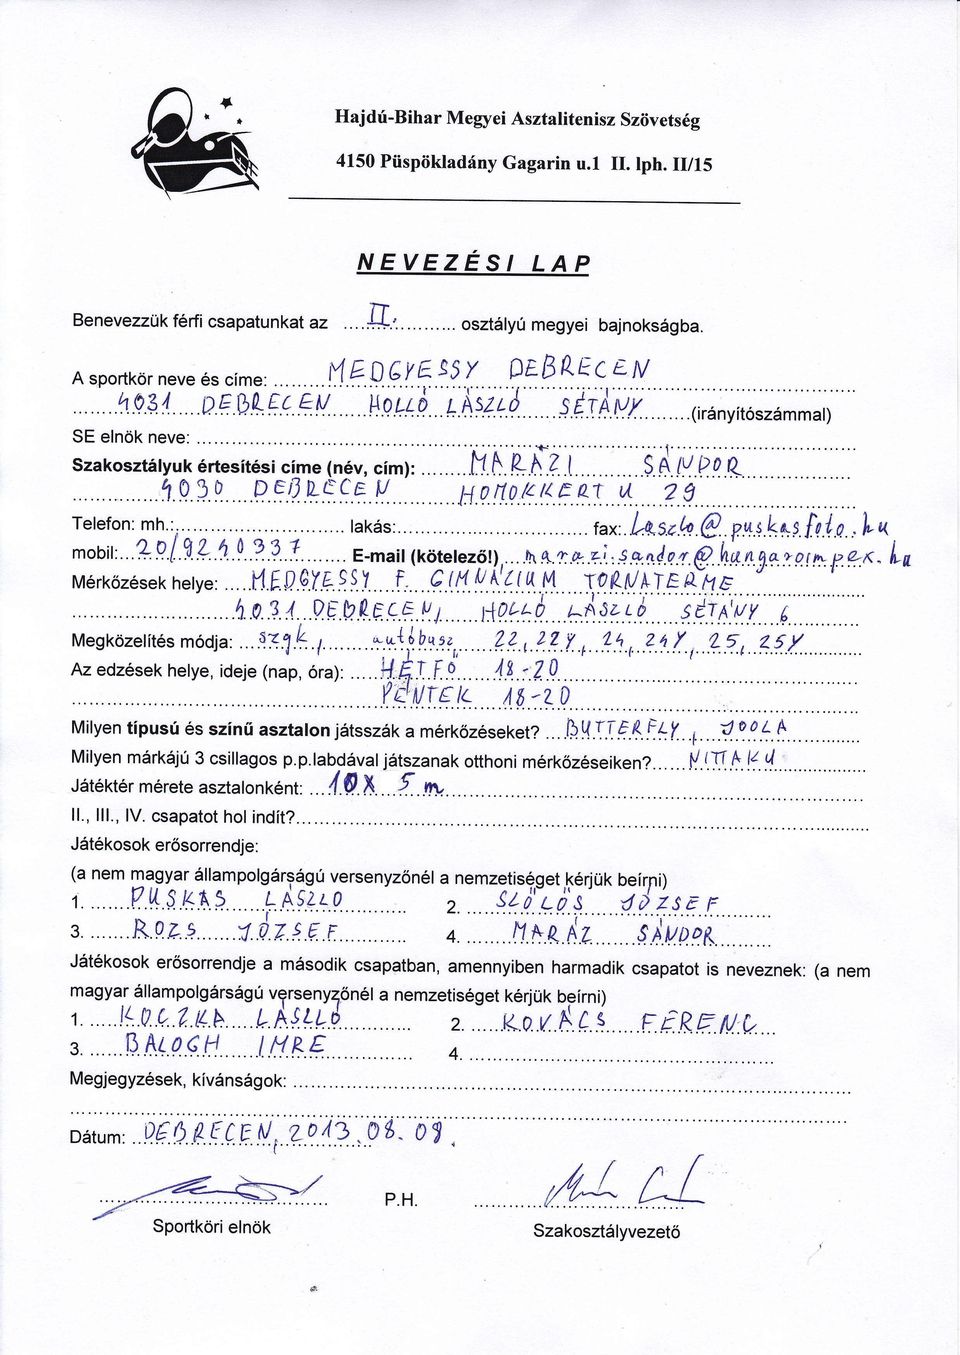 Hajdú-Bihar Megyei Asztalitenisz Szövetség
4150 Püspökladány Gagarin u.1 II. lph. II/15
NEVEZÉSI LAP
Benevezzük férfi csapatunkat az II. osztályú megyei bajnokságba.
A sportkör neve és címe: MEDGYESSY DEBRECEN
4031 DEBRECEN HOLLÓ LÁSZLÓ SÉTÁNY (irányítószámmal)
SE elnök neve:
Szakosztályuk értesítési címe (név, cím): MARÁZI SÁNDOR
4030 DEBRECEN HOMOKKERT U 29
Telefon: mh.: lakás: fax: Laszlo@puskasfoto.hu
mobil: 20/9240337 E-mail (kötelező!) marazi.sandor@hungaroimpex.hu
Mérkőzések helye: MEDGYESSY F. GIMNÁZIUM TORNATERME
4031 DEBRECEN, HOLLÓ LÁSZLÓ SÉTÁNY 6
Megközelítés módja: szgk, autóbusz 22, 22Y, 24, 24Y, 25, 25Y
Az edzések helye, ideje (nap, óra): HÉTFŐ 18-20
PÉNTEK 18-20
Milyen típusú és színű asztalon játsszák a mérkőzéseket? BUTTERFLY, JOOLA
Milyen márkájú 3 csillagos p.p.labdával játszanak otthoni mérkőzéseiken? NITTAKU
Játéktér mérete asztalonként: 10 X 5 m
II., III., IV. csapatot hol indít?
Játékosok erősorrendje:
(a nem magyar állampolgárságú versenyzőnél a nemzetiséget kérjük beírni)
1. PUSKÁS LÁSZLÓ 2. SZŐLŐS JÓZSEF
3. ROZS JÓZSEF 4. MARÁZ SÁNDOR
Játékosok erősorrendje a második csapatban, amennyiben harmadik csapatot is neveznek: (a nem
magyar állampolgárságú versenyzőnél a nemzetiséget kérjük beírni)
1. KOCZKA LÁSZLÓ 2. KOVÁCS FERENC
3. BALOGH IMRE 4.
Megjegyzések, kívánságok:
Dátum: DEBRECEN, 2013.08.08.
P.H.
Sportköri elnök Szakosztályvezető